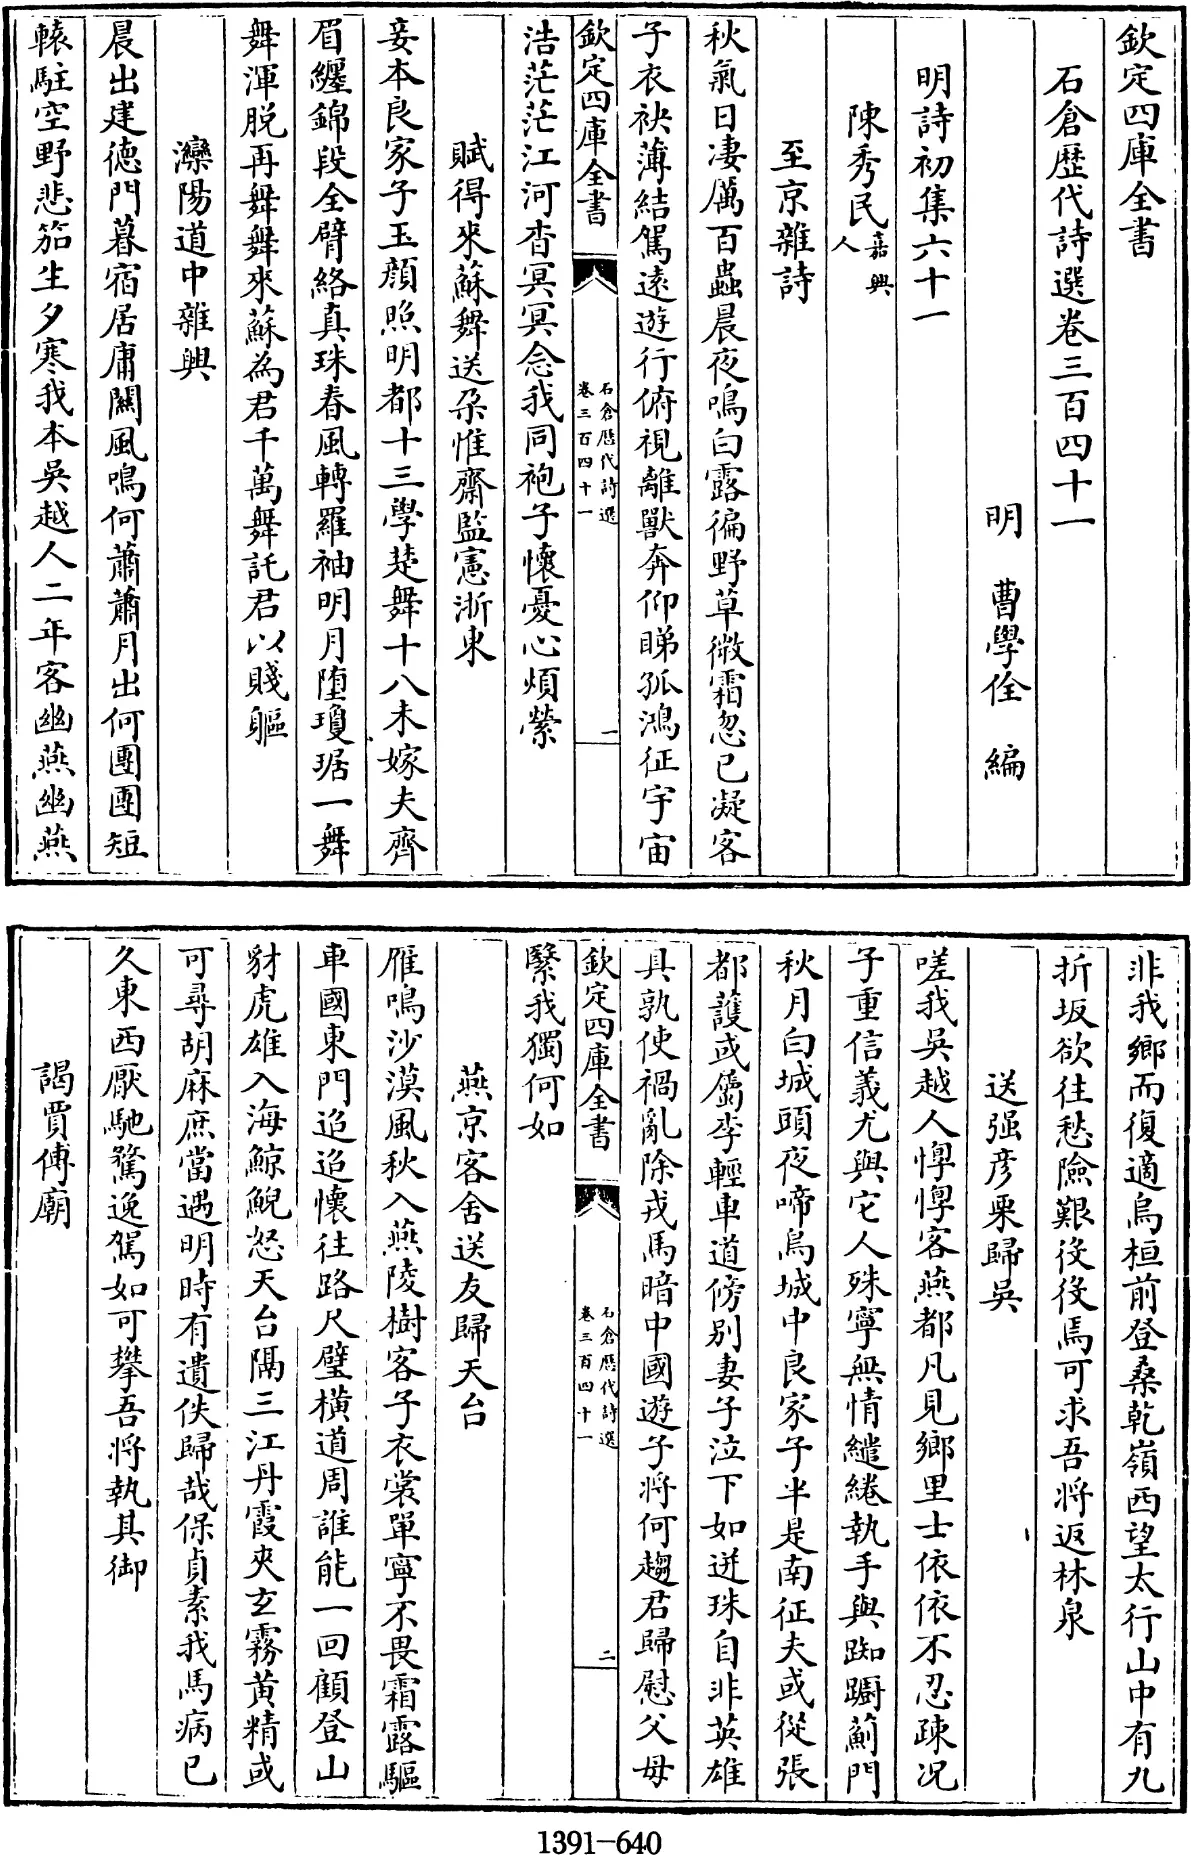 欽定四庫全書
石倉歴代詩選卷三百四十一
明　曹學佺　編
明詩初集六十一
陳秀民嘉興人
至京雜詩
秋氣日凄厲百蟲晨夜鳴白露徧野草微霜忽已凝客
子衣袂薄結駕遠遊行俯視離獸奔仰睇孤鴻征宇宙
欽定四庫全書
石倉歴代詩選
卷三百四十一
一
浩茫茫江河杳冥冥念我同袍子懷憂心煩縈
賦得來蘇舞送朶惟齋監憲浙東
妾本良家子玉顔照明都十三學楚舞十八未嫁夫齊
眉纒錦段全臂絡真珠春風轉羅袖明月墮瓊琚一舞
舞渾脱再舞舞來蘇為君千萬舞託君以賤軀
灤陽道中雜興
晨出建德門暮宿居庸關風鳴何蕭蕭月出何團團短
轅駐空野悲笳生夕寒我本吳越人二年客幽燕幽燕
非我鄉而復適烏桓前登桑乾嶺西望太行山中有九
折坂欲往愁險艱役役焉可求吾將返林泉
送强彦栗歸吳
嗟我吳越人惸惸客燕都凡見鄉里士依依不忍疎况
子重信義尤與它人殊寧無情繾綣執手與踟蹰薊門
秋月白城頭夜啼烏城中良家子半是南征夫或從張
都䕶或屬李輕車道傍别妻子泣下如迸珠自非英雄
具孰使禍亂除戎馬暗中國遊子將何趨君歸慰父母
欽定四庫全書
石倉歴代詩選
卷三百四十一
二
緊我獨何如
燕京客舍送友歸天台
雁鳴沙漠風秋入燕陵樹客子衣裳單寧不畏霜露驅
車國東門迢迢懷往路尺璧横道周誰能一回顧登山
豺虎雄入海鯨鯢怒天台隔三江丹霞夾玄霧黄精或
可尋胡麻庶當遇明時有遺佚歸哉保貞素我馬病已
久東西厭馳騖逸駕如可攀吾將執其御
謁賈傅廟
1391-640